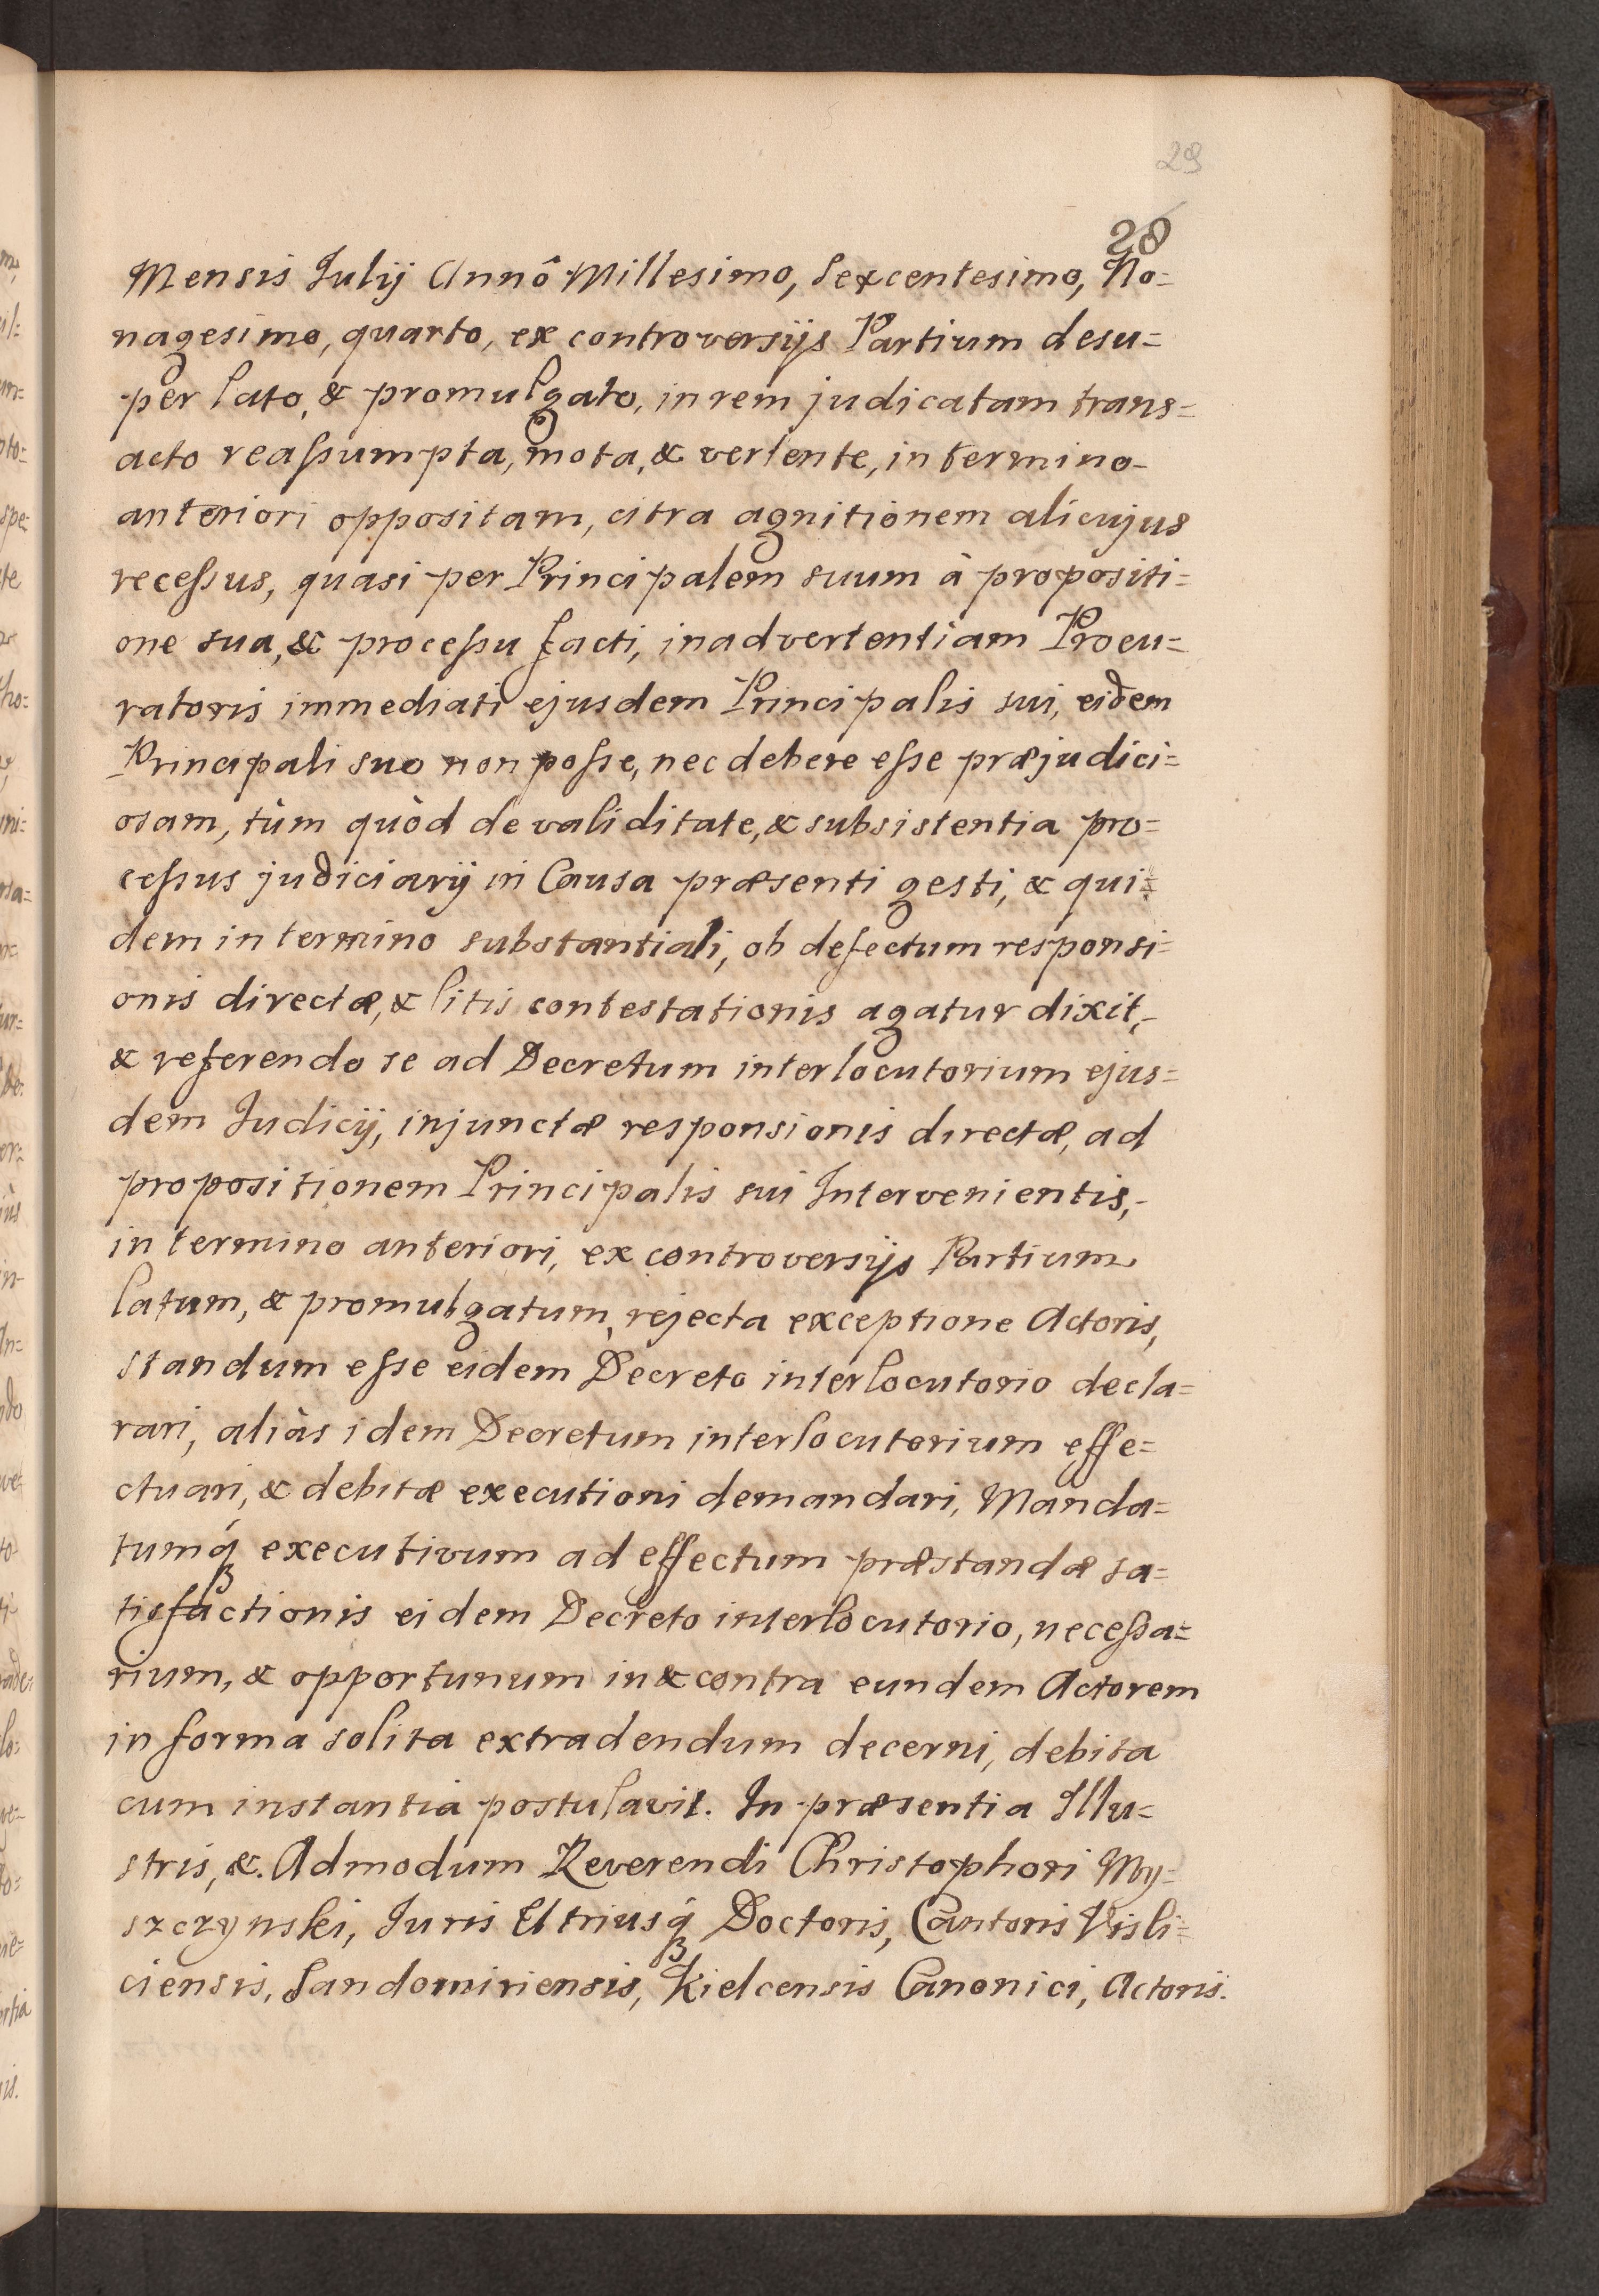 29
28
Mensis Julij Annô Millesimo, Sexcentesimo, No=
nagesimo, quarto, ex controversijs Partium desu=
per lato, & promulgato, in rem judicatam trans=
acto reassumpta, mota, & vertente, in termino
anteriori oppositam, citra agnitionem alicujus
recessus, quasi per Principalem suum à propositi=
one sua, & processu facti, inadvertentiam Procu=
ratoris immediati ejusdem Principalis sui, eidem
Principali suo non posse, nec debere esse præjudici=
osam, tùm quòd de validitate, & subsistentia pro=
cessus judiciarij in Causa præsenti gesti, & qui=
dem in termino substantiali, ob defectum responsi=
onis directæ, & litis contestationis agatur dixit,
& referendo se ad Decretum interlocutorium ejus=
dem Judicij, injunctæ responsionis directæ, ad
propositionem Principalis sui Intervenientis,
in termino anteriori, ex controversijs Partium
latum, & promulgatum, rejecta exceptione Actoris,
standum esse eidem Decreto interlocutorio decla=
rari, aliàs idem Decretum interlocutorium effe=
ctuari, & debitæ executioni demandari, Manda=
tumq́ executivum ad effectum præstandæ sa=
tisfactionis eidem Decreto interlocutorio, necessa=
rium, & opportunum in & contra eundem Actorem
in forma solita extradendum decerni, debita
cum instantia postulavit. In præsentia Illu=
stris, &. Admodum Reverendi Christophori My=
szczynski, Juris Utriusq́ Doctoris, Cantoris Visli=
ciensis, Sandomiriensis, Kielcensis Canonici, Actoris.